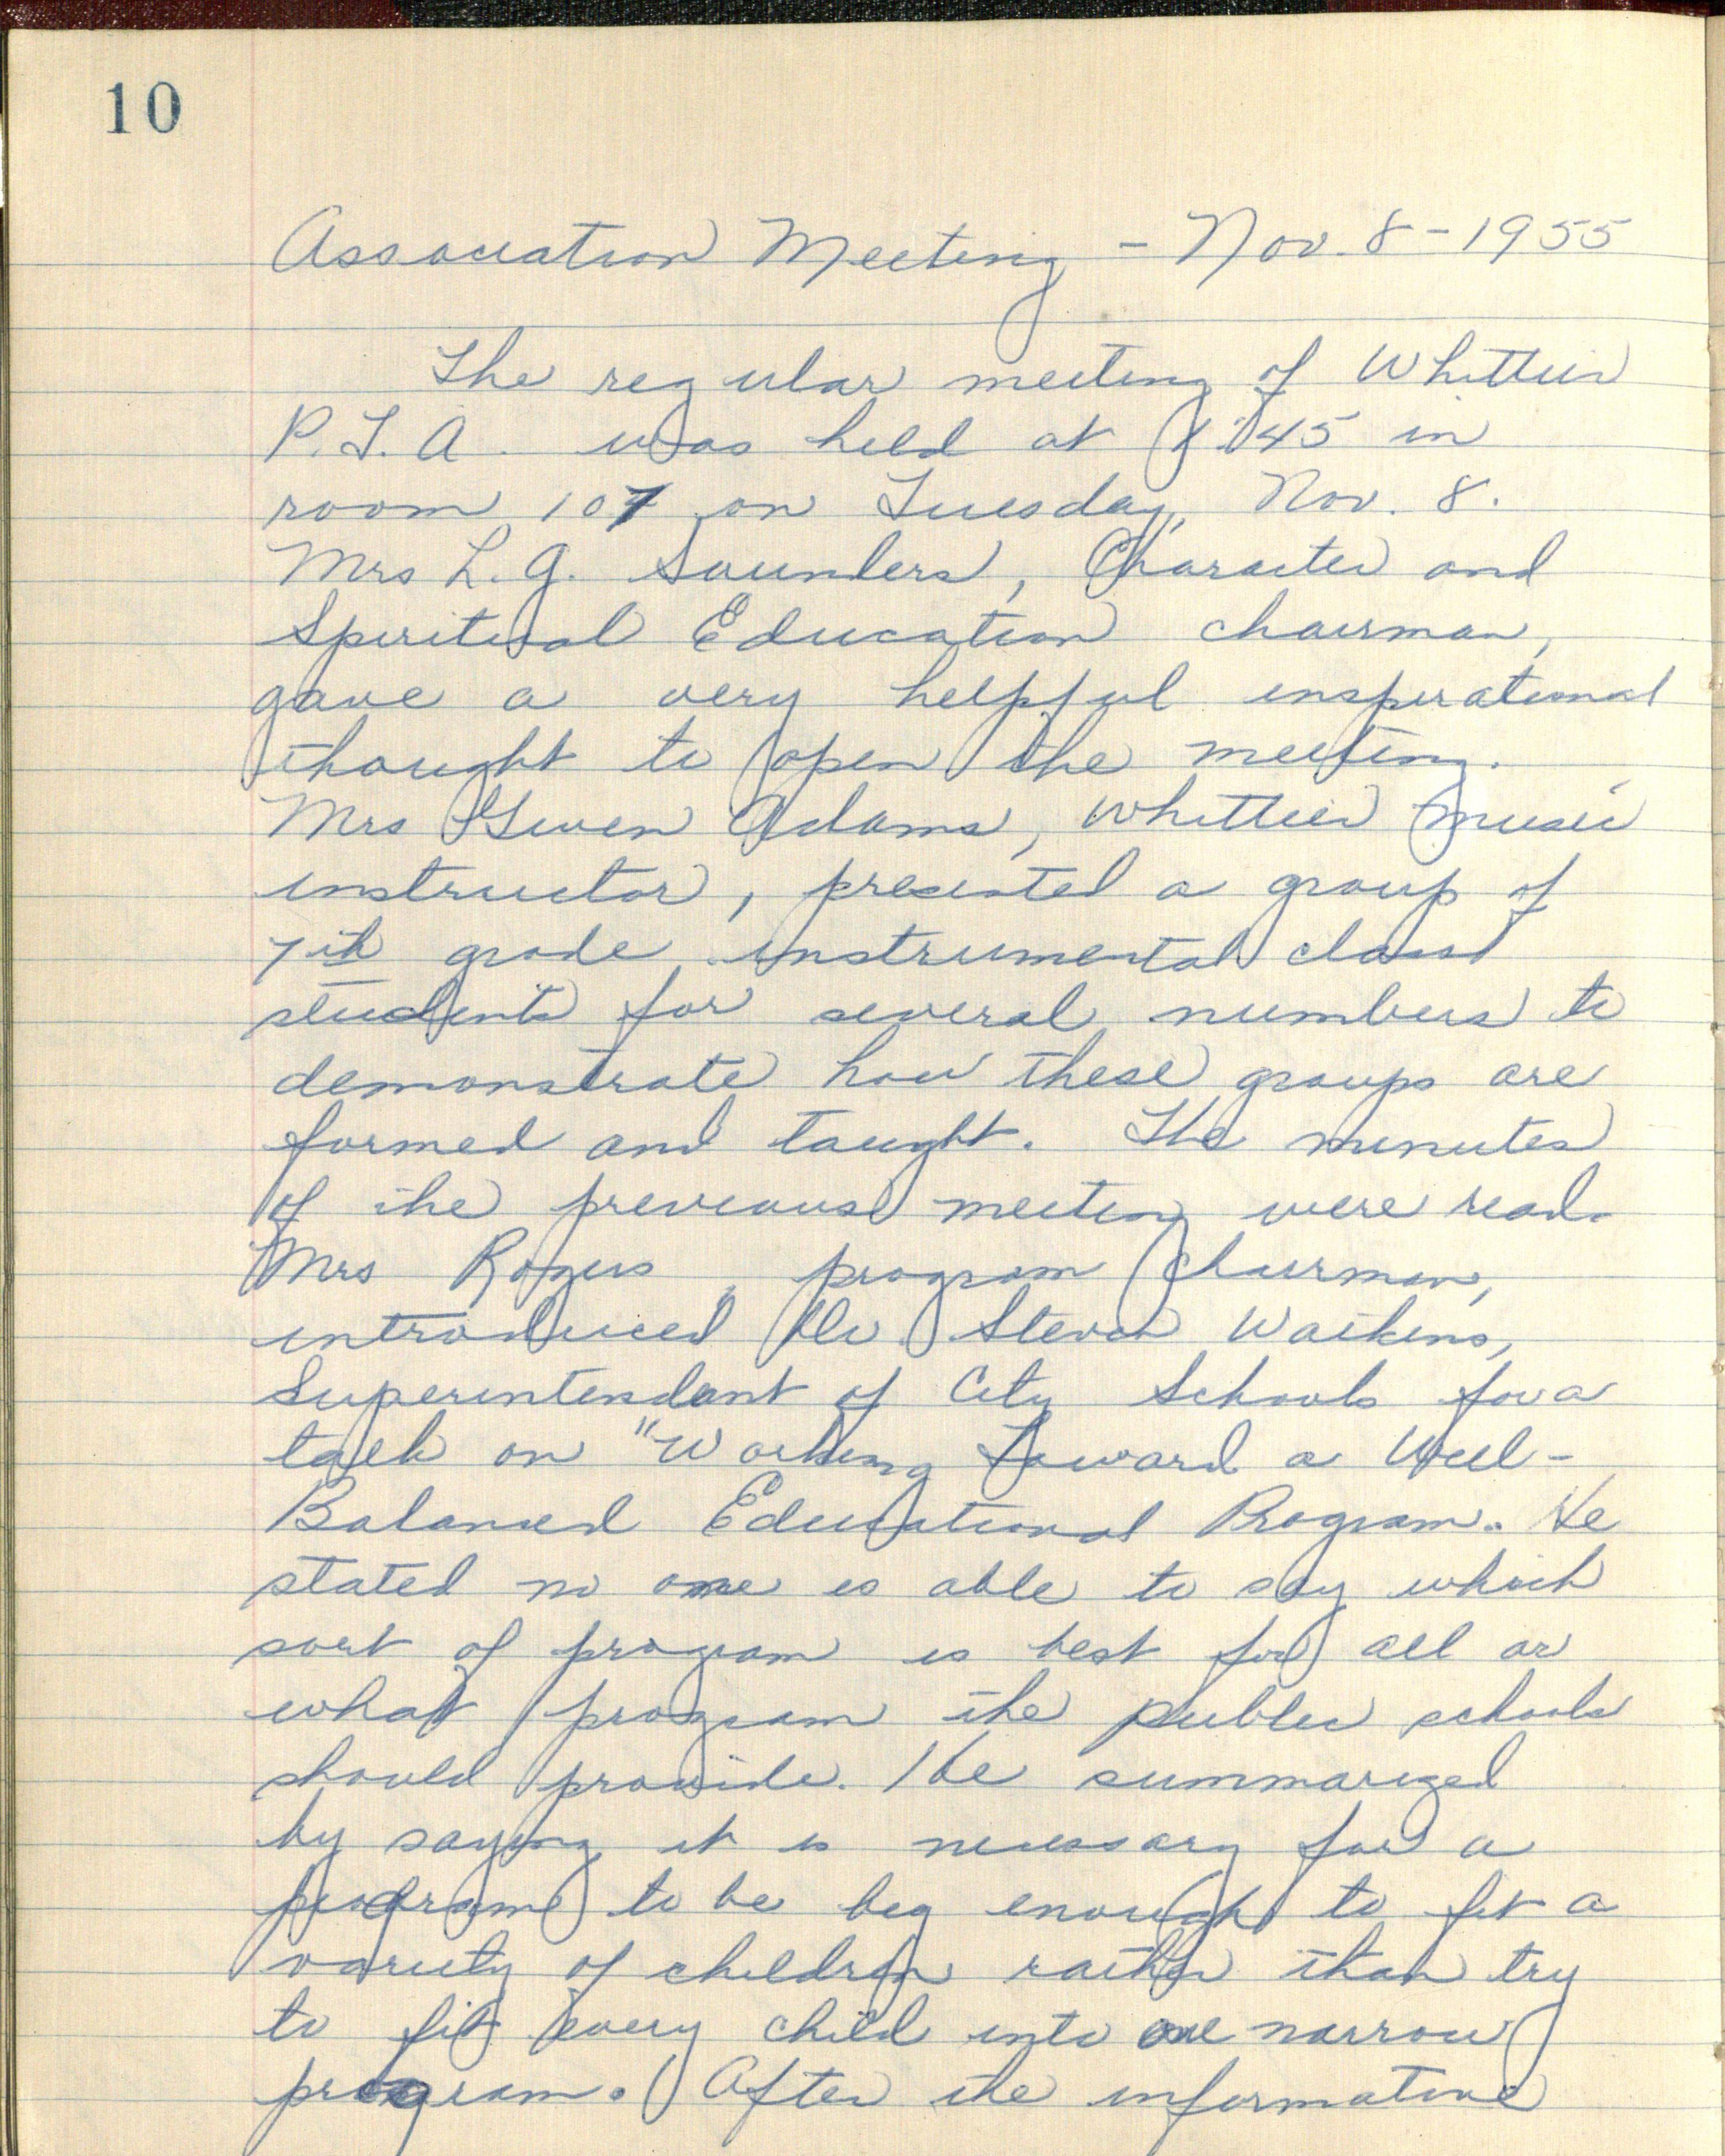 10
Association Meeting - Nov. 8 - 1955
The regular meeting of Whittier
P.T.A. was held at 1:45 in
room 107 on Tuesday, Nov. 8.
Mrs L. G. Saunders, Character and
Spiritual Education chairman,
gave a very helpful inspirational
thought to open the meeting.
Mrs Gwen Adams, Whittier music
instructor, presented a group of
7th grade instrumental class
students for several numbers to
demonstrate how these groups are
formed and taught. The minutes
of the previous meeting were read.
Mrs Rogers, program chairman,
introduced Dr Steven Watkins,
Superintendant of City Schools for a
talk on "Working Toward a Well-
Balanced Educational Program. He
stated no one is able to say which
sort of program is best for all or
what program the public schools
should provide. He summarized
by saying it is necessary for a
program to be big enough to fit a
variety of children rather than try
to fit every child into one narrow
program. After the informative